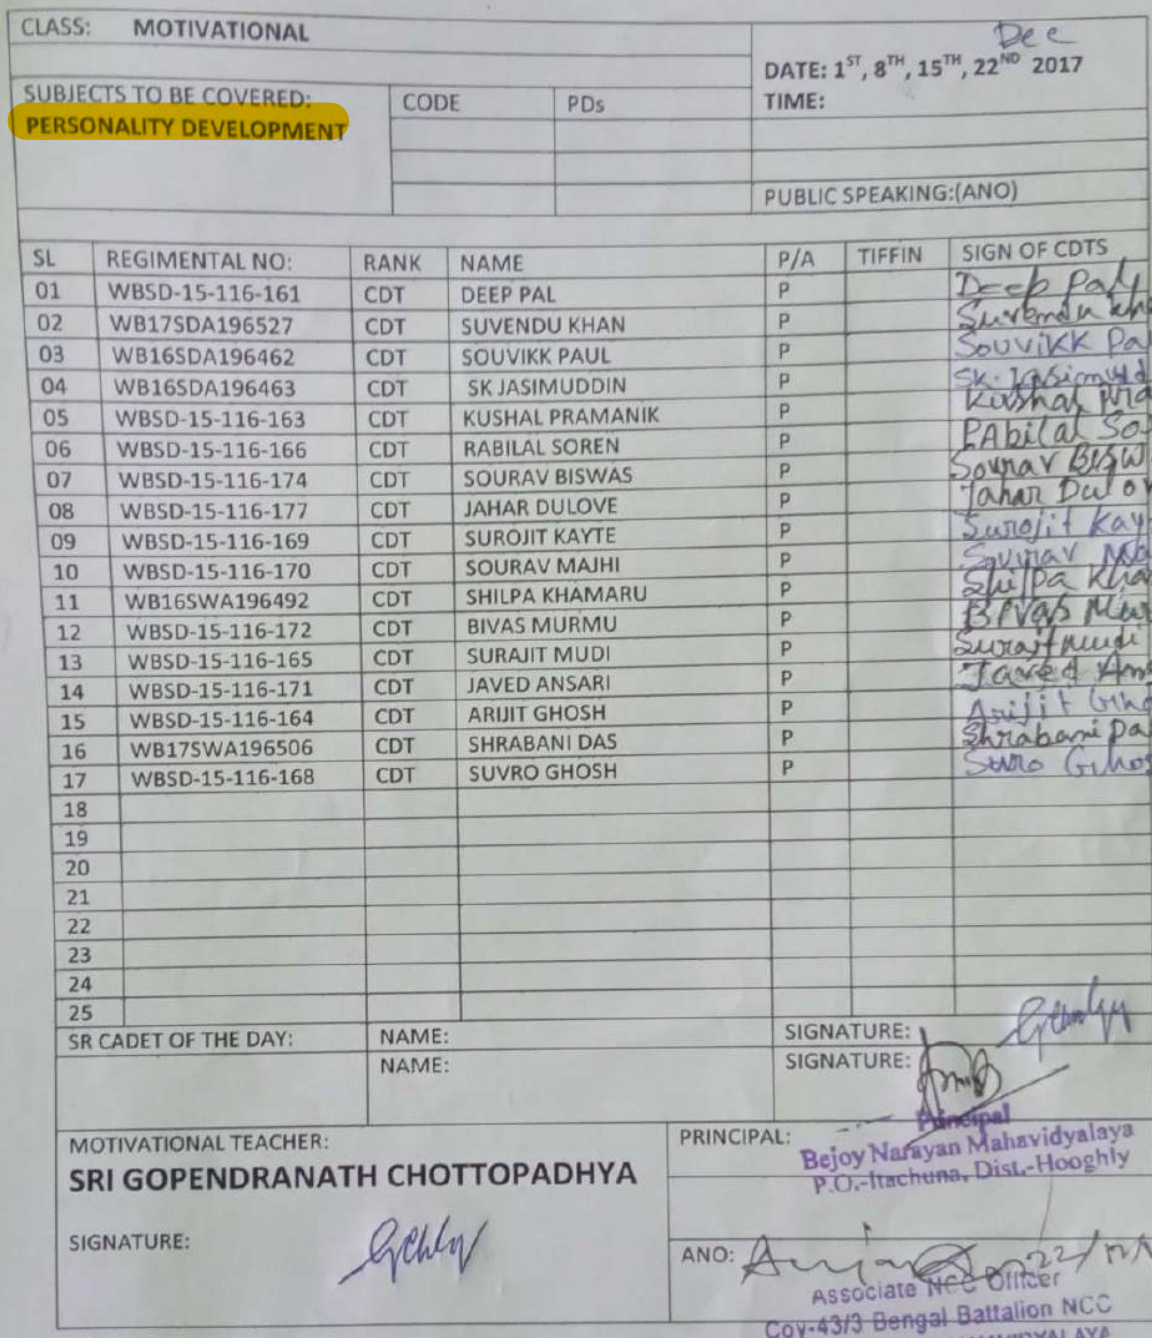 CLASS: MOTIVATIONAL
Dec
DATE: 1ST, 8TH, 15TH, 22ND 2017
TIME:
SUBJECTS TO BE COVERED:
PERSONALITY DEVELOPMENT
CODE PDs
PUBLIC SPEAKING:(ANO)
SL REGIMENTAL NO: RANK NAME P/A TIFFIN SIGN OF CDTS
01 WBSD-15-116-161 CDT DEEP PAL P Deep Pal
02 WB17SDA196527 CDT SUVENDU KHAN P Suvendu
03 WB16SDA196462 CDT SOUVIKK PAUL P Souvikk Pa
04 WB16SDA196463 CDT SK JASIMUDDIN P SK. Jasimudd
05 WBSD-15-116-163 CDT KUSHAL PRAMANIK P Kushal
06 WBSD-15-116-166 CDT RABILAL SOREN P RAbilal So
07 WBSD-15-116-174 CDT SOURAV BISWAS P Sourav BISW
08 WBSD-15-116-177 CDT JAHAR DULOVE P Jahar Dulov
09 WBSD-15-116-169 CDT SUROJIT KAYTE P Surojit Kay
10 WBSD-15-116-170 CDT SOURAV MAJHI P Sourav Ma
11 WB16SWA196492 CDT SHILPA KHAMARU P Shilpa Kha
12 WBSD-15-116-172 CDT BIVAS MURMU P Bivas Mur
13 WBSD-15-116-165 CDT SURAJIT MUDI P Surajit Mudi
14 WBSD-15-116-171 CDT JAVED ANSARI P Javed Ans
15 WBSD-15-116-164 CDT ARIJIT GHOSH P Arijit Gho
16 WB17SWA196506 CDT SHRABANI DAS P Shrabani Da
17 WBSD-15-116-168 CDT SUVRO GHOSH P Suvro Ghos
18
19
20
21
22
23
24
25
SR CADET OF THE DAY: NAME: SIGNATURE:
NAME: SIGNATURE:
MOTIVATIONAL TEACHER:
SRI GOPENDRANATH CHOTTOPADHYA
SIGNATURE:
PRINCIPAL:
Principal
Bejoy Narayan Mahavidyalaya
P.O.-Itachuna, Dist.-Hooghly
ANO: 22/12/1
Associate NCC Officer
Coy-43/3 Bengal Battalion NCC